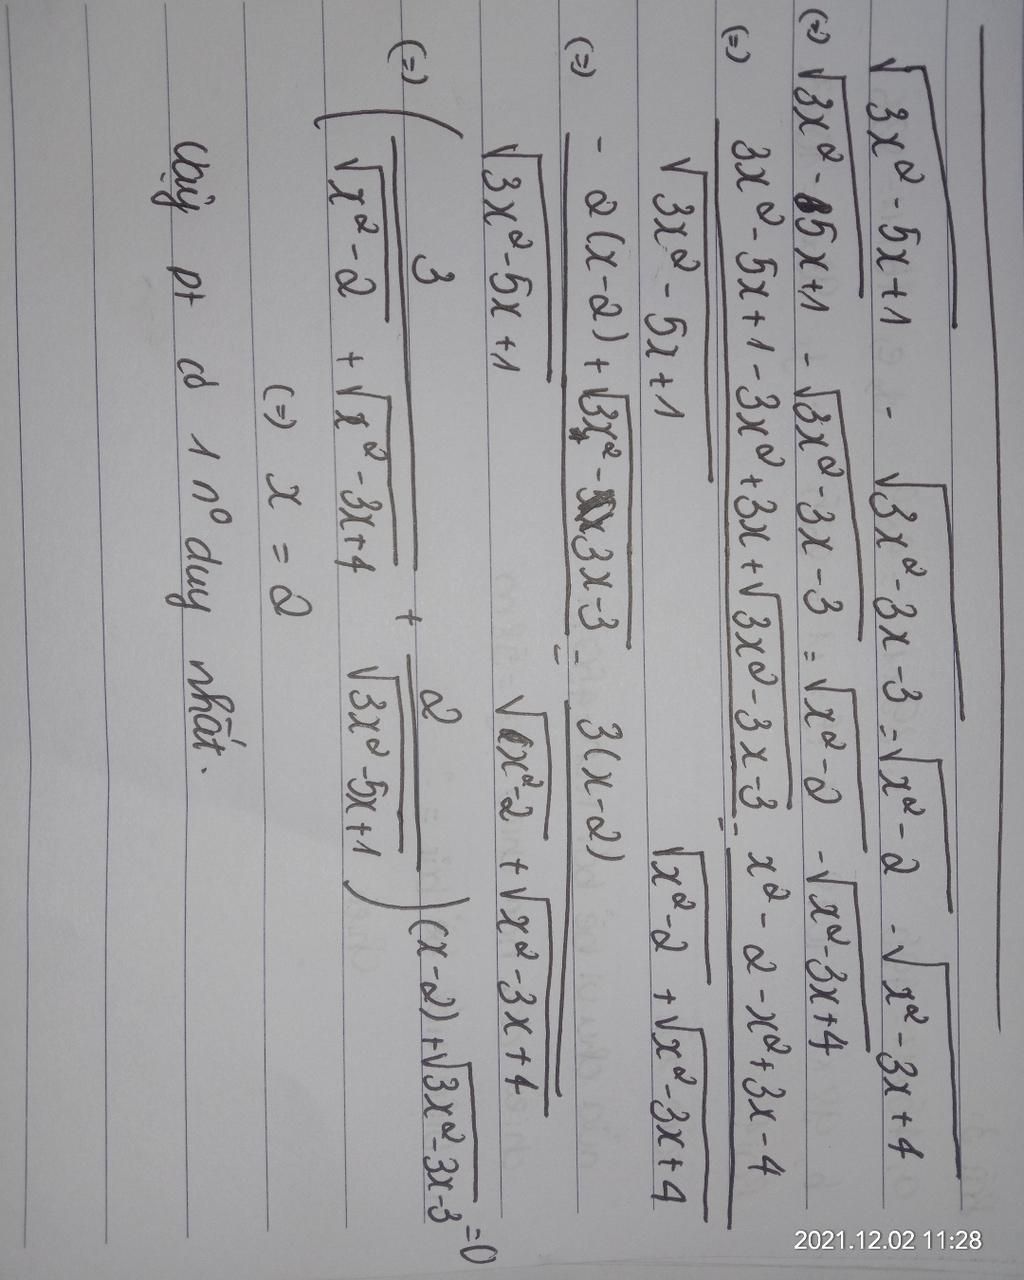 √(3x² - 5x + 1) - √(3x² - 3x - 3) = √(x² - 2) - √(x² - 3x + 4)
(=) √(3x² - 5x + 1) - √(3x² - 3x - 3) = √(x² - 2) - √(x² - 3x + 4)
(=) (3x² - 5x + 1 - 3x² + 3x + √(3x² - 3x - 3)) / √(3x² - 5x + 1) = (x² - 2 - x² + 3x - 4) / (√(x² - 2) + √(x² - 3x + 4))
(=) (-2(x - 2) + √(3x² - 3x - 3)) / √(3x² - 5x + 1) = 3(x - 2) / (√(x² - 2) + √(x² - 3x + 4))
(=) (3 / (√(x² - 2) + √(x² - 3x + 4)) + 2 / √(3x² - 5x + 1)) (x - 2) + √(3x² - 3x - 3) = 0
(=) x = 2
Vậy pt có 1 n⁰ duy nhất.
2021.12.02 11:28